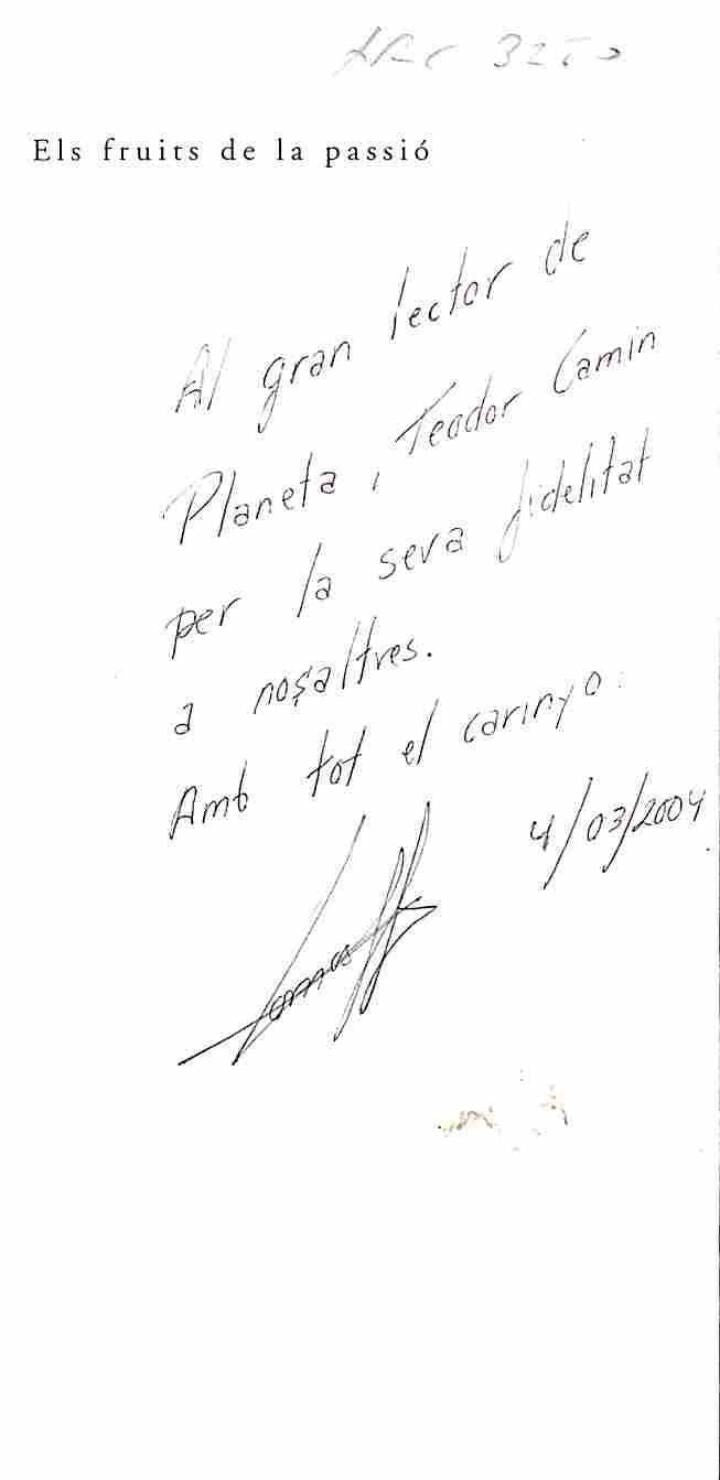 Els fruits de la passió
Al gran lector de
Planeta, Teodor Camin
per la seva fidelitat
a nosaltres.
Amb tot el carinyo.
4/03/2004